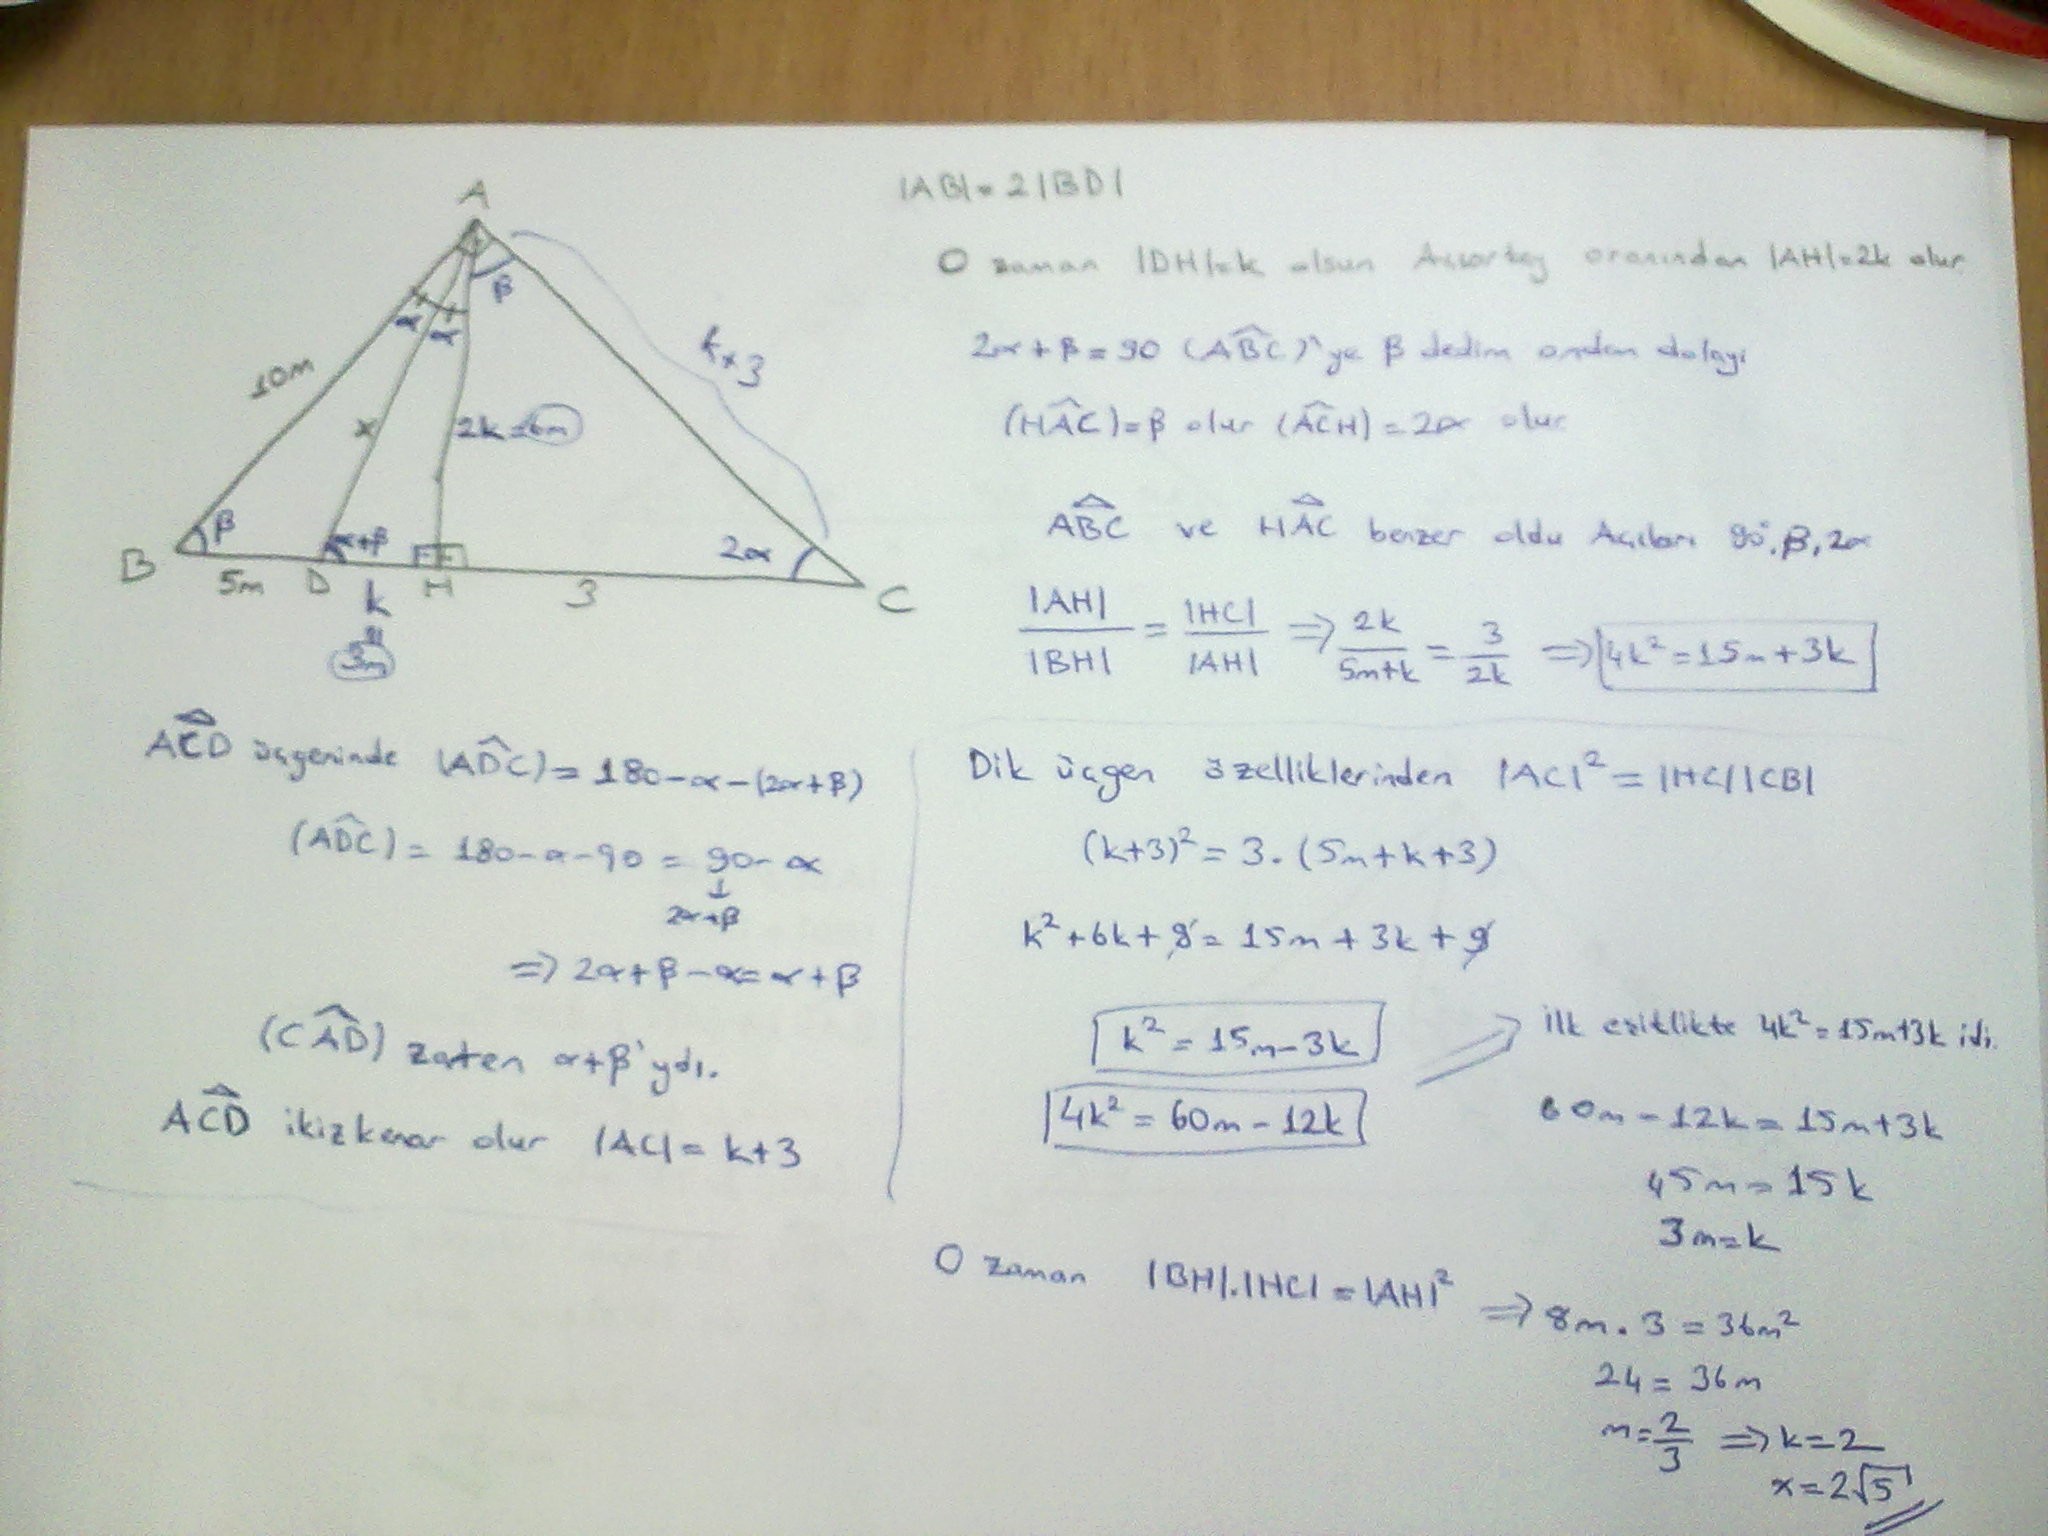 A
β
α
α
10m
x
2k=6m
k+3
B
β
α+β
2α
5m
D
k
H
3
C
=
3m
|AB|=2|BD|
O zaman |DH|=k olsun Açıortay oranından |AH|=2k olur
2α+β=90 (ABC)'ye β dedim ondan dolayı
(HAC)=β olur (ACH)=2α olur
ABC ve HAC benzer oldu Açıları 90°,β,2α
|AH|/|BH| = |HC|/|AH| ⇒ 2k/5m+k = 3/2k ⇒ 4k²=15m+3k
ACD üçgeninde (ADC)=180-α-(2α+β)
(ADC)=180-α-90=90-α
↓
2α+β
⇒ 2α+β-α=α+β
(CAD) zaten α+β'ydı.
ACD ikizkenar olur |AC|=k+3
Dik üçgen özelliklerinden |AC|²=|HC||CB|
(k+3)²=3.(5m+k+3)
k²+6k+9=15m+3k+9
k²=15m-3k
4k²=60m-12k
ilk eşitlikte 4k²=15m+3k idi.
60m-12k=15m+3k
45m=15k
3m=k
O zaman |BH|.|HC|=|AH|² ⇒ 8m.3=36m²
24=36m
m=2/3 ⇒ k=2
x=2√5